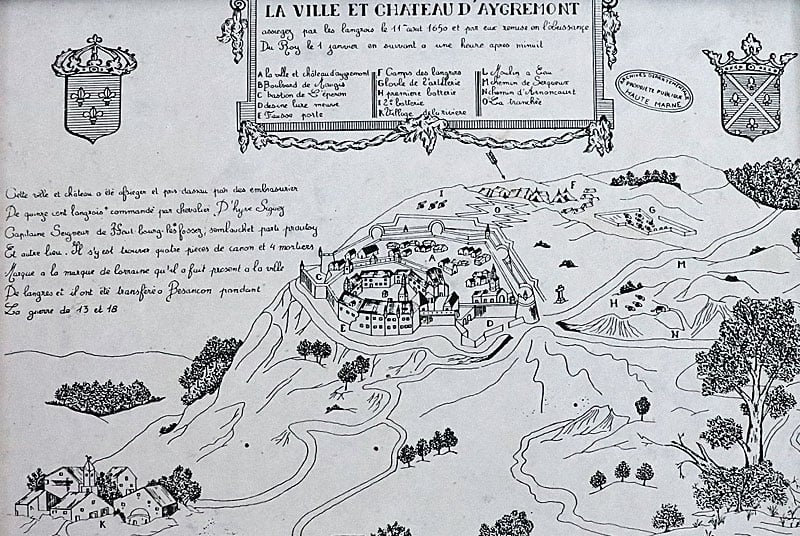 LA VILLE ET CHATEAU D'AYGREMONT
assiegez par les langrois le 11e aout 1650 et par eux remise en l'obeissance
Du Roy le 1 janvier en suivant a une heure apres minuit
A la ville et château d'aygremont
B Boulvard de Maugis
C bastion de l'éperon
D
E Fausse porte
F Camps des langrois
G de l'artillerie
H première batterie
I 2e batterie
K Village de la rivière
L Moulin a Eau
M chemin de Serqueux
N chemin d'Arnoncourt
O La tranchée
PROPRIÉTÉ PUBLIQUE
HAUTE MARNE
Cette ville et château a été assieger et pris dassau par des embrasurier
De quinze cent langrois commandé par chevalier D'hyre Seguey
Capitaine Seigneur de Haut-bourg-les fossez,
Et autre lieu. Il s'y est trouver quatre pieces de canon et 4 mortiers
Marque a la marque de lorraine qu'il a fait present a la ville
De langres et il ont été transféré a Besancon pandant
La guerre de 13 et 18
I
F
O
G
A
M
C
B
H
E
D
N
K